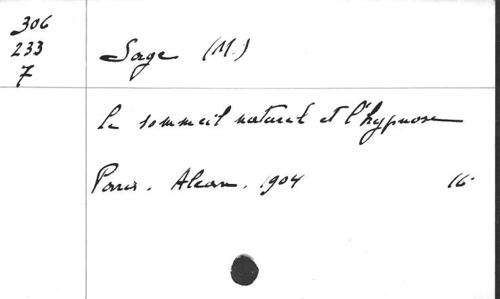 306
233
7
Sage (M.)
Le sommeil naturel et l'hypnose
Paris. Alcan. 1904 16°